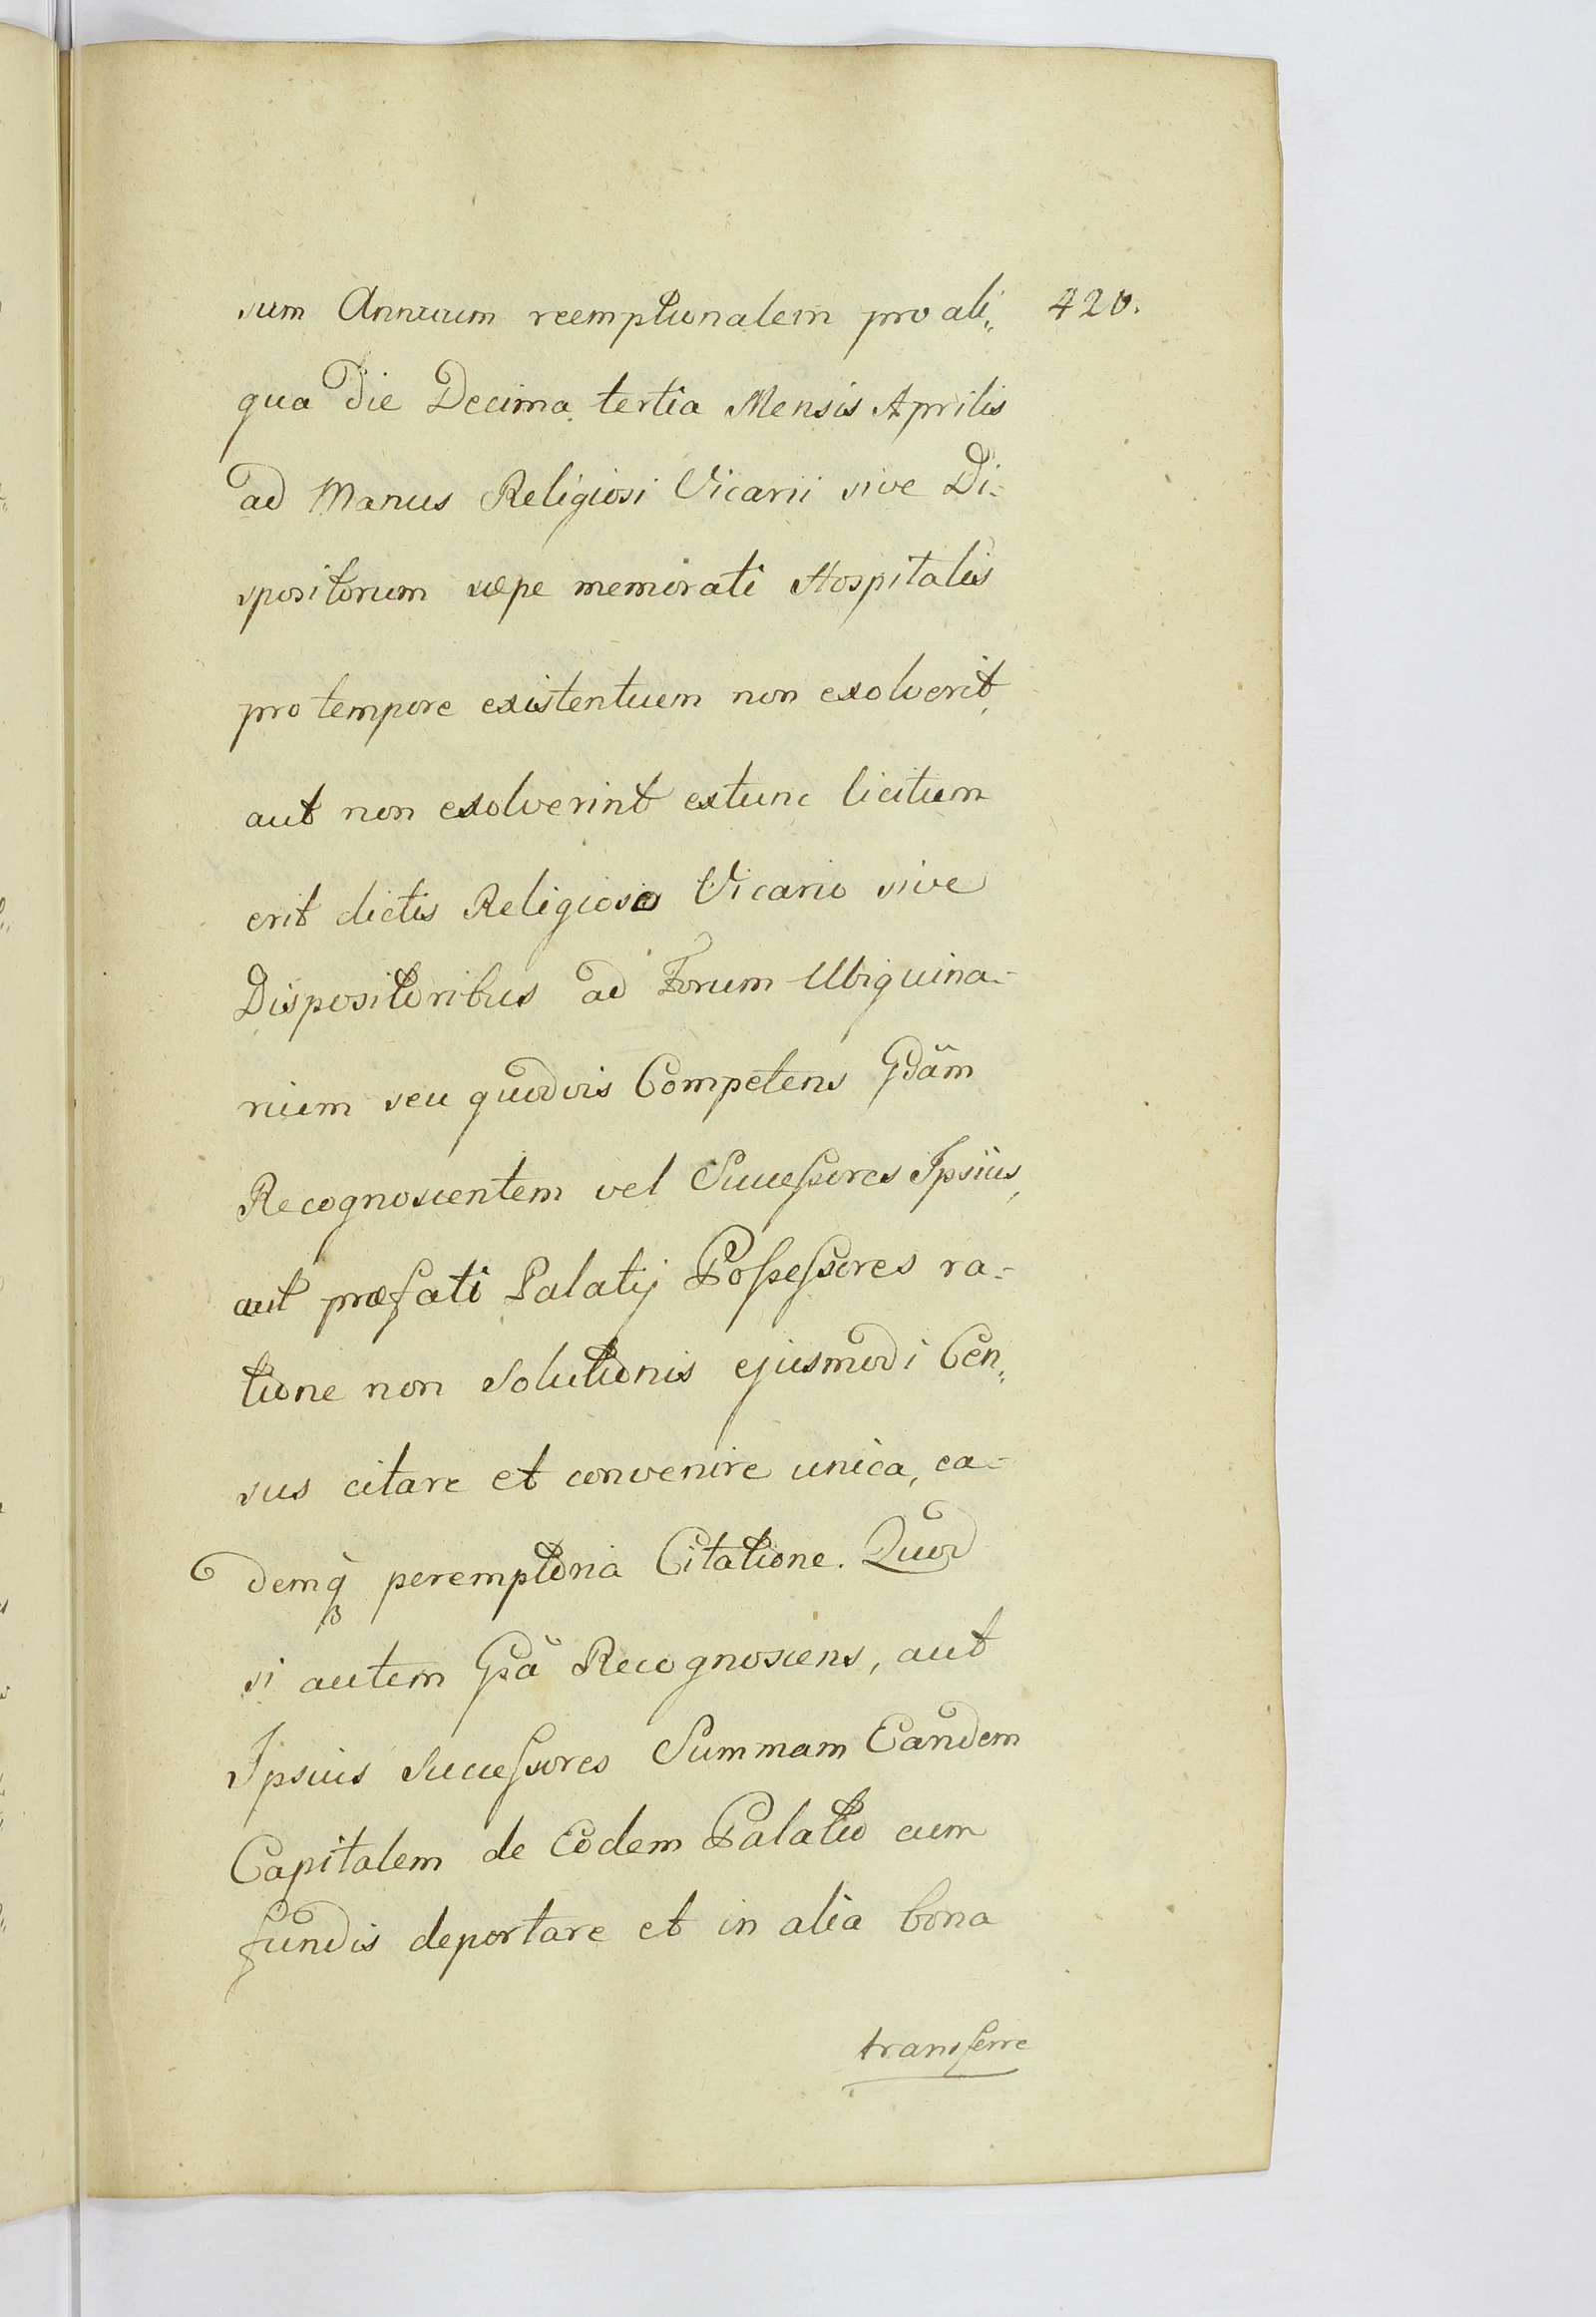 sum Annuum reemptionalem pro ali„ 420.
qua die Decima tertia Mensis Aprilis
ad Manus Religiosi Vicarii sive Di-
spositorum sæpe memorati Hospitalis
pro tempore existentium non exolverit,
aut non exolverint extunc licitum
erit dictis Religioso Vicario sive
Dispositoribus ad Forum Ubiquina-
rium seu quodvis Competens Gdam
Recognoscentem vel Successores Ipsius,
aut præfati Palatij Possessores ra-
tione non Solutionis ejusmodi Cen„
sus citare et convenire unica, ea-
demq3 peremptoria Citatione. Quod
si autem Gsa Recognoscens, aut
Ipsius Successores Summam Eandem
Capitalem de Eodem Palatio cum
fundis deportare et in alia bona
transferre